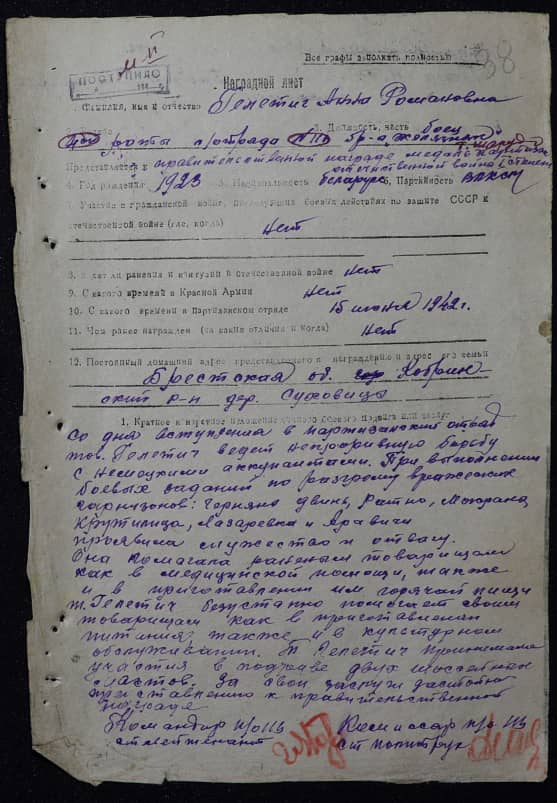 Все графы заполнять полностью
38
ПОСТУПИЛО
Наградной лист
1. Фамилия, имя и отчество Гелетич Анна Романовна
2. Должность, часть боец
рота п/отряда №112 бр-а
Представляется к правительственной награде медаль партизан
отечественной войны
4. Год рождения 1923 5. Национальность беларус 6. Партийность ВЛКСМ
7. Участие в гражданской войне, последующих боевых действиях по защите СССР и
отечественной войне (где, когда) Нет
8. Имеет ли ранения и контузии в отечественной войне Нет
9. С какого времени в Красной Армии Нет
10. С какого времени в Партизанском отряде 15 июня 1942г.
11. Чем ранее награжден (за какие отличия и когда) Нет
12. Постоянный домашний адрес представляемого к награждению и адрес его семьи
Брестская об. Кобрин
ский р-н дер. Суховица
1. Краткое конкретное изложение личного боевого подвига или заслуг
Со дня вступления в партизанский отряд
тов. Гелетич ведет непрерывную борьбу
с немецкими аккупантами. При выполнении
боевых заданий по разгрому вражеских
гарнизонов: Черняны двинь, Ратно, Мокраны,
Крутилица, Лазаревка и
проявила мужество и отвагу.
Она помагала раненым товарищам
как в медицинской помощи, также
и в приготовлении им горячей пищи
т. Гелетич безустанно помогает своим
товарищам как в приготовлении
питания, также и в культурном
обслуживании. Т. Гелетич принимала
участия в подрыве двух
мостов. За свои заслуги достойна
представлению к правительственной
награде
Командир п/о 112 Комиссар п/о 112
ст лейтенант ст политрук